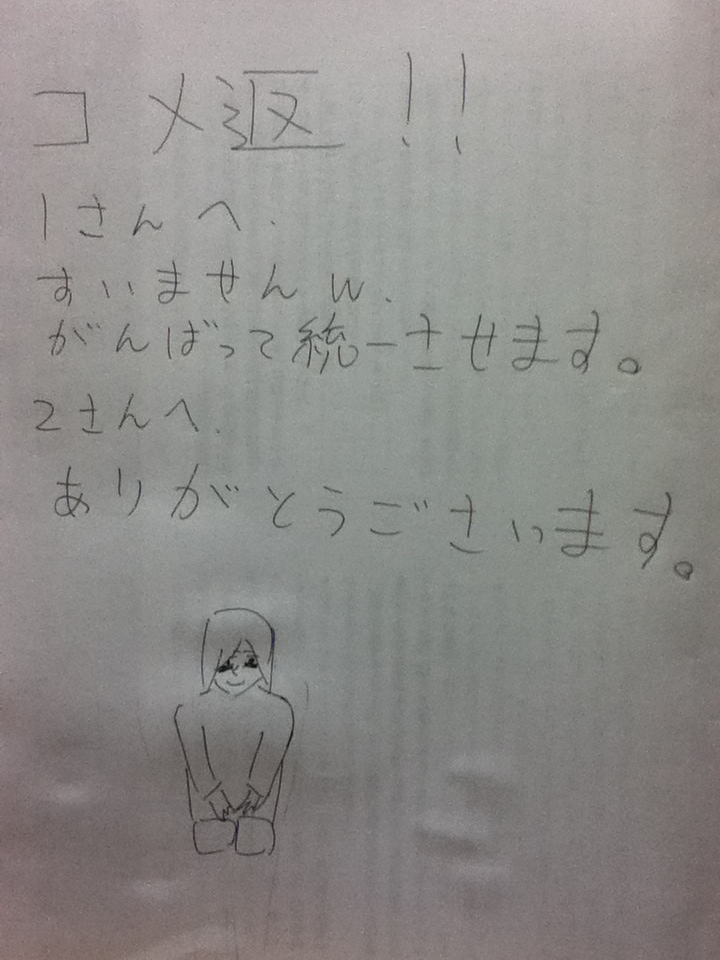 コメ返!!
1さんへ.
すいませんw.
がんばって統一させます。
2さんへ.
ありがとうございます。